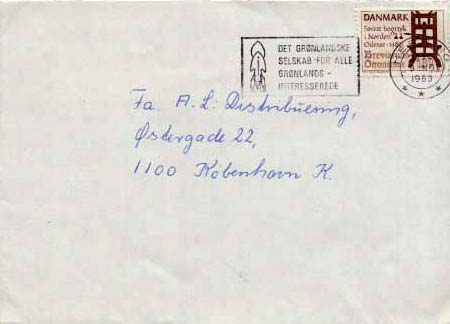 DANMARK
Første bogtryk
i Norden
Odense 1482
Breviarium
DET GRØNLANDSKE
SELSKAB FOR ALLE
GRØNLANDS -
INTERESSEREDE
1983
Fa. A. L. Distribuering,
Østergade 22,
1100 København K.